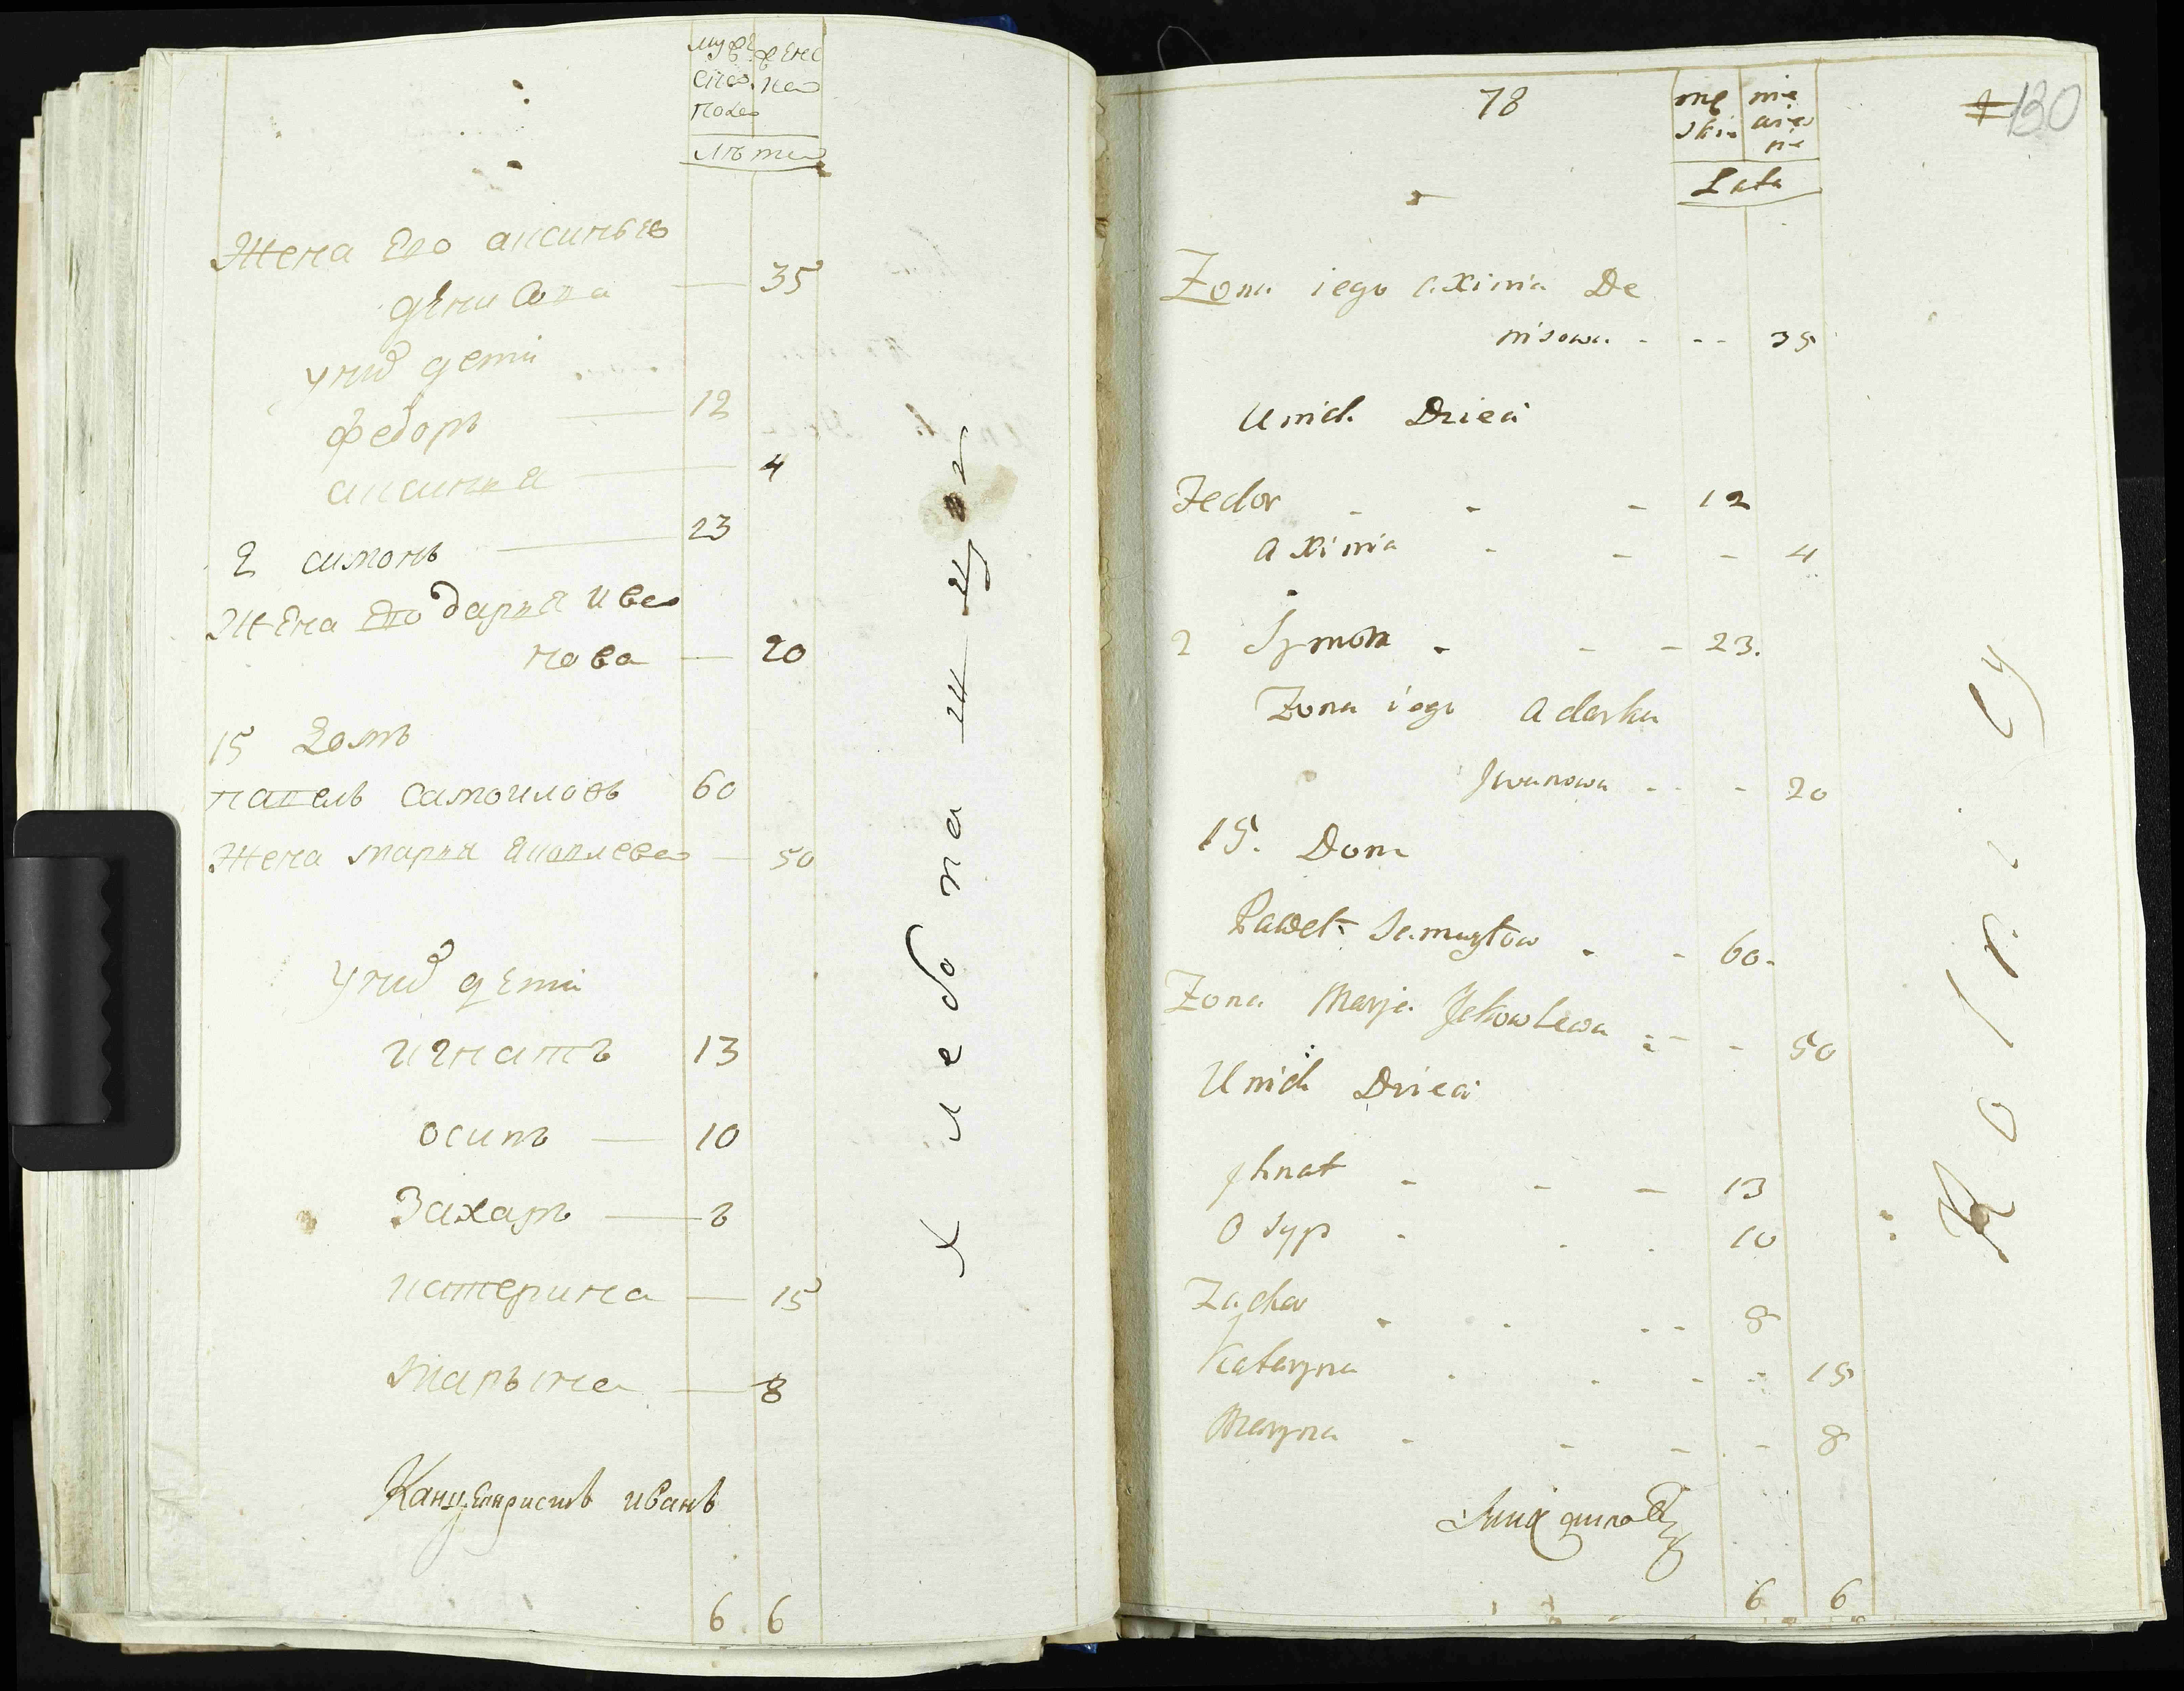 мужеска
женска
пола
лѣта
Жена его аксинья
денисова — 35
у них дети
федоръ — 12
аксинья — 4
2 симонъ — 23
Жена его дарья ива
нова — 20
15 домъ
павелъ самоиловъ 60
Жена марья яковлева — 50
у них дети
игнатъ 13
осипъ — 10
Захаръ — 8
катерина — 15
марына — 8
Канцеляристъ иванъ
6 6
хлебопашцы
78
130
Lata
Zona iego axinia De
nisowa - - - 35
U nich Dzieci
Fedor - - - 12
axinia - - - 4
2 Symon - - - 23.
Zona iego adarka
Jwanowa - - - 20
15. Dom
Paweł Samuyłow - - 60.
Zona Marja Jakowlewa - - 50
U nich Dzieci
Jhnat - - - 13
Osyp - - - 10
Zachar - - - - 8
Kataryna - - - - 15
Maryna - - - - 8
6 6
Rolnicy